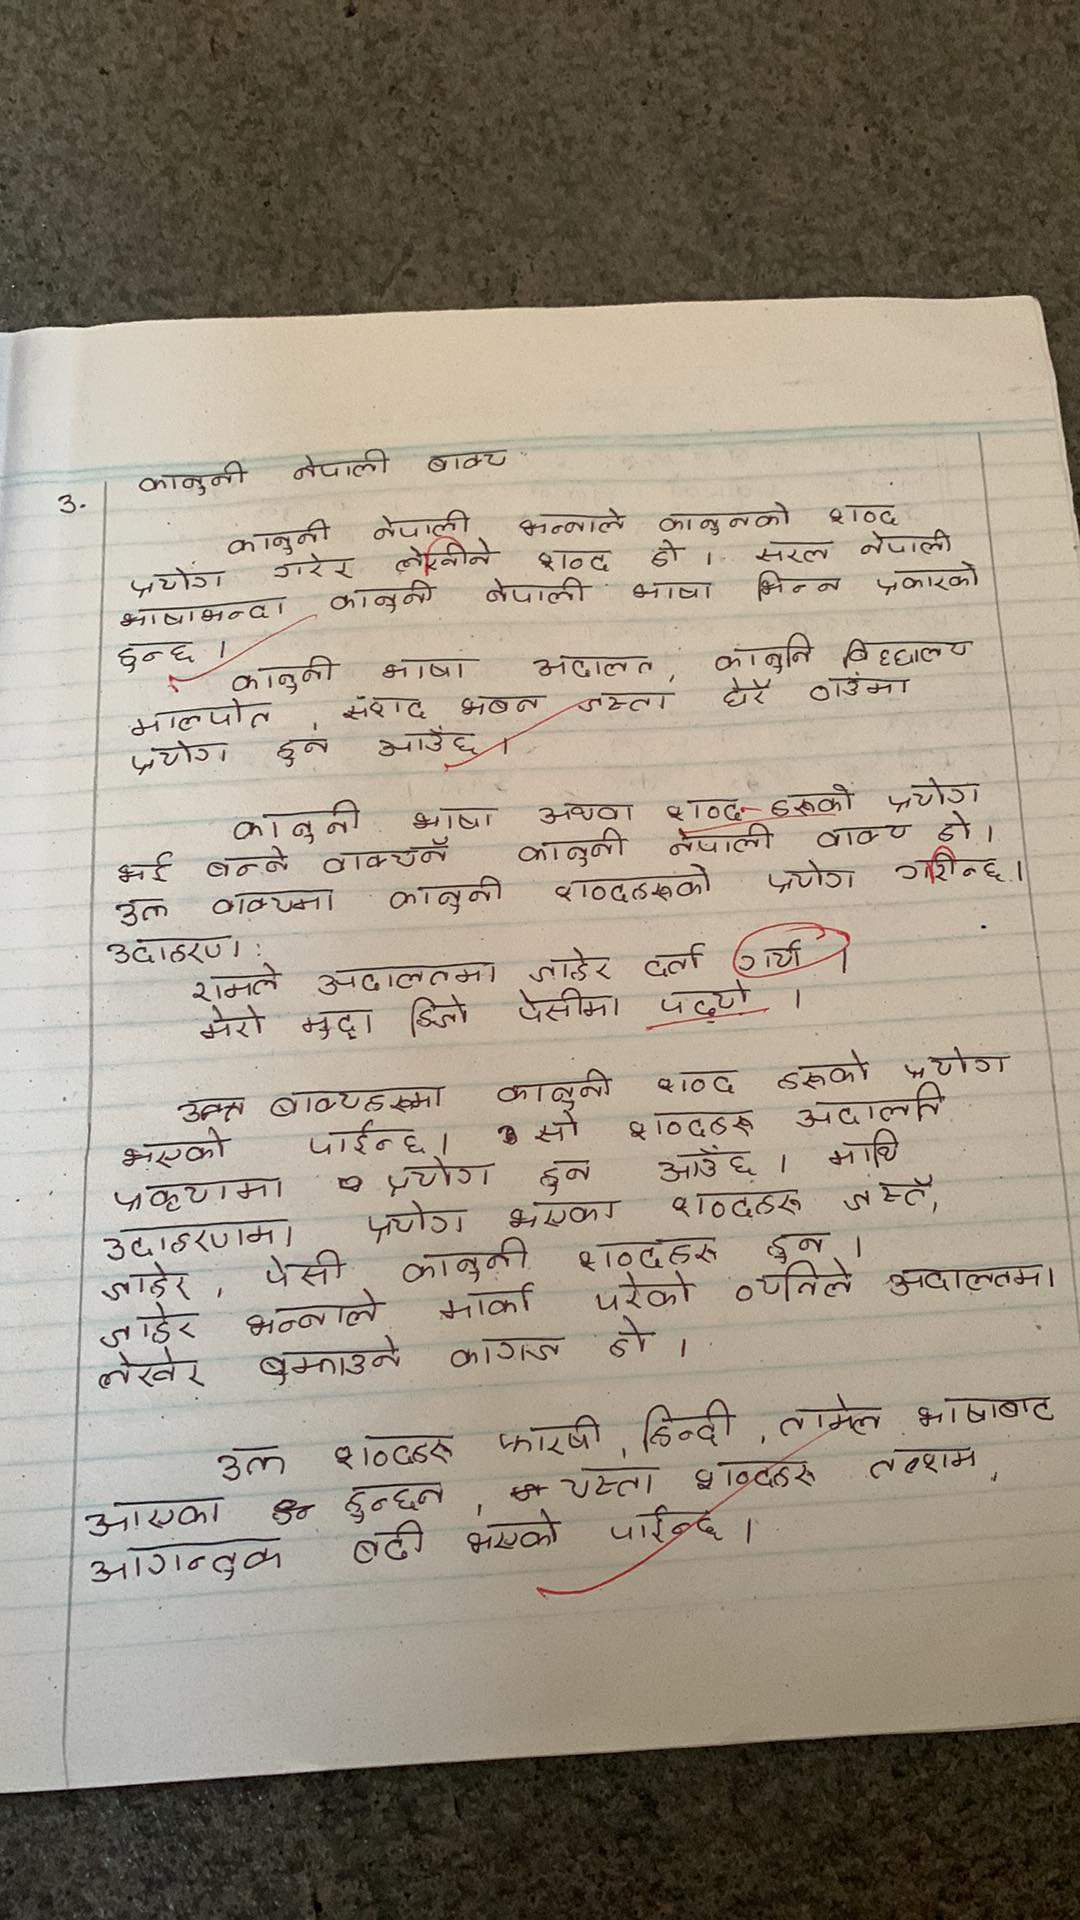 3. कानुनी नेपाली बाक्य
कानुनी नेपाली भन्नाले कानुनको शब्द
प्रयोग गरेर लेखीने शब्द हो । सरल नेपाली
भाषाभन्दा कानुनी नेपाली भाषा भिन्न प्रकारको
हुन्छ ।
कानुनी भाषा अदालत, कानुनि विद्यालय
मालपोत , संशद भबन जस्ता धेरै ठाउँमा
प्रयोग हुन आउँछ ।
कानुनी भाषा अथवा शब्द-हरूको प्रयोग
भई बन्ने वाक्यनै कानुनी नेपाली वाक्य हो ।
उक्त वाक्यमा कानुनी शब्दहरूको प्रयोग गरीन्छ ।
उदाहरण :
रामले अदालतमा जाहेर दर्ता गर्यो ।
मेरो मुद्दा हिजो पेसीमा पद्यो ।
उक्त बाक्यहरूमा कानुनी शब्द हरूको प्रयोग
भएको पाईन्छ । सो शब्दहरू अदालति
प्रकृयामा प्रयोग हुन आउँछ । माथि
उदाहरणमा प्रयोग भएका शब्दहरू जस्तै,
जाहेर , पेसी कानुनी शब्दहरू हुन ।
जाहेर भन्नाले मार्का परेको व्यक्तिले अदालतमा
लेखेर बुझाउने कागज हो ।
उक्त शब्दहरू फारषी , हिन्दी , तामेल भाषाबाट
आएका हुन्छन , यस्ता शब्दहरू तत्शम ,
आगन्तुक बढी भएको पाईन्छ ।